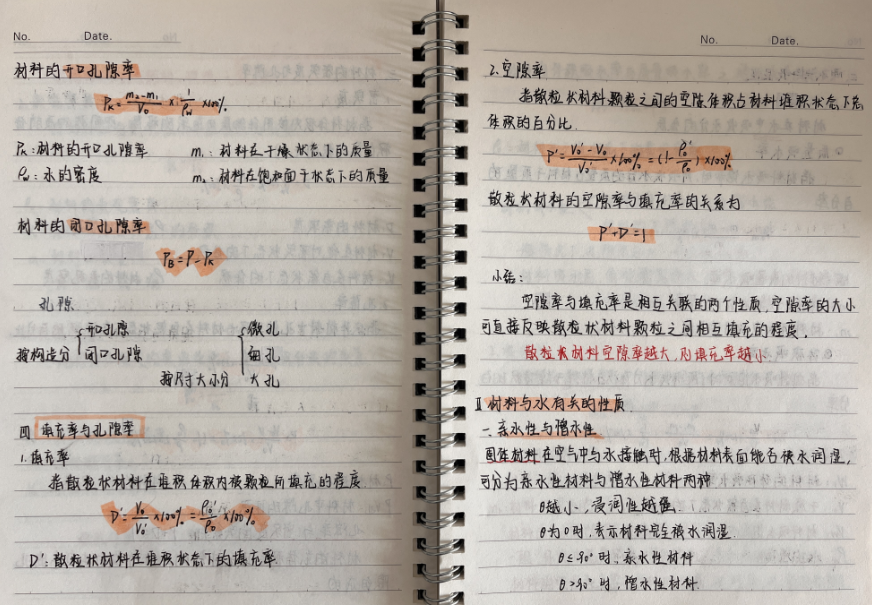 No. Date.
材料的开口孔隙率
Pₖ = (m₂-m₁)/V₀ × 1/ρw ×100%
Pₖ:材料的开口孔隙率 m₁:材料在干燥状态下的质量
ρw:水的密度 m₂:材料在饱和面干状态下的质量
材料的闭口孔隙率
P_B = P - Pₖ
孔隙
按构造分{开口孔隙
闭口孔隙
按尺寸大小分{微孔
细孔
大孔
四 填充率与孔隙率
1.填充率
指散粒状材料在堆积体积内被颗粒所填充的程度
D' = V₀/V₀' ×100% = ρ₀'/ρ₀ ×100%
D':散粒状材料在堆积状态下的填充率
No. Date.
2.空隙率
指散粒状材料颗粒之间的空隙体积占材料堆积状态下总
体积的百分比.
P' = (V₀'-V₀)/V₀' ×100% = (1-ρ₀'/ρ₀)×100%
散粒状材料的空隙率与填充率的关系为
P'+D'=1
小结:
空隙率与填充率是相互关联的两个性质,空隙率的大小
可直接反映散粒状材料颗粒之间相互填充的程度,
散粒状材料空隙率越大,则填充率越小
Ⅱ 材料与水有关的性质
一.亲水性与憎水性
固体材料在空气中与水接触时,根据材料表面能否被水润湿,
可分为亲水性材料与憎水性材料两种
θ越小,浸润性越强
θ为0时,表示材料完全被水润湿.
θ≤90°时,亲水性材料
θ>90°时,憎水性材料.